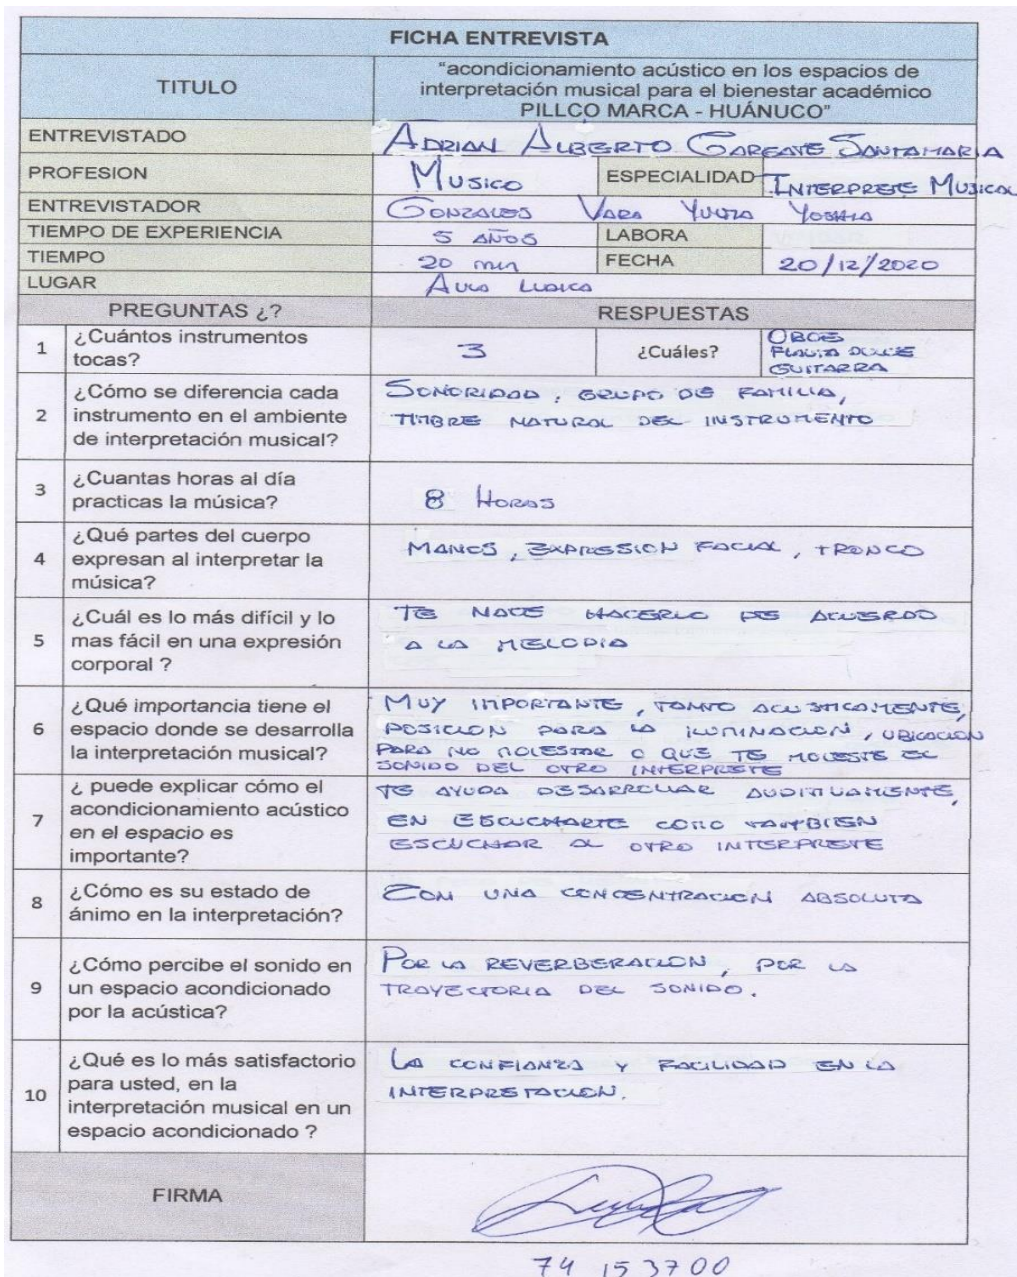 FICHA ENTREVISTA
TITULO
"acondicionamiento acústico en los espacios de
interpretación musical para el bienestar académico
PILLCO MARCA - HUÁNUCO"
ENTREVISTADO ADRIAN ALBERTO GARGATE SANTAMARIA
PROFESION MUSICO ESPECIALIDAD INTERPRETE MUSICAL
ENTREVISTADOR GONZALES VARA YOSHIA
TIEMPO DE EXPERIENCIA 5 AÑOS LABORA
TIEMPO 20 min FECHA 20/12/2020
LUGAR AULA LUDICA
PREGUNTAS ¿? RESPUESTAS
1 ¿Cuántos instrumentos
tocas?
3 ¿Cuáles?
OBOE
FLAUTA DULCE
GUITARRA
2 ¿Cómo se diferencia cada
instrumento en el ambiente
de interpretación musical?
SONORIDAD, GRUPO DE FAMILIA,
TIMBRE NATURAL DEL INSTRUMENTO
3 ¿Cuantas horas al día
practicas la música?
8 HORAS
4 ¿Qué partes del cuerpo
expresan al interpretar la
música?
MANOS, EXPRESION FACIAL, TRONCO
5 ¿Cuál es lo más difícil y lo
mas fácil en una expresión
corporal ?
TE NACE HACERLO DE ACUERDO
A LA MELODIA
6 ¿Qué importancia tiene el
espacio donde se desarrolla
la interpretación musical?
MUY IMPORTANTE, TANTO ACUSTICAMENTE,
POSICION PARA LA ILUMINACION, UBICACION
PARA NO MOLESTAR O QUE TE MOLESTE EL
SONIDO DEL OTRO INTERPRETE
7 ¿ puede explicar cómo el
acondicionamiento acústico
en el espacio es
importante?
TE AYUDA DESARROLLAR AUDITIVAMENTE,
EN ESCUCHARTE COMO TAMBIEN
ESCUCHAR AL OTRO INTERPRETE
8 ¿Cómo es su estado de
ánimo en la interpretación?
CON UNA CONCENTRACION ABSOLUTA
9 ¿Cómo percibe el sonido en
un espacio acondicionado
por la acústica?
POR LA REVERBERACION, POR LA
TRAYECTORIA DEL SONIDO.
10 ¿Qué es lo más satisfactorio
para usted, en la
interpretación musical en un
espacio acondicionado ?
LA CONFIANZA Y FACILIDAD EN LA
INTERPRETACION.
FIRMA
74 15 37 00